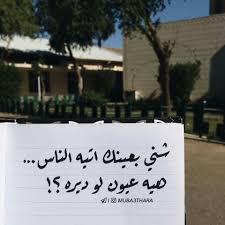 شني بعينك اتيه الناس...
هيه عيون لو ديره ؟!
MUBA3THARA